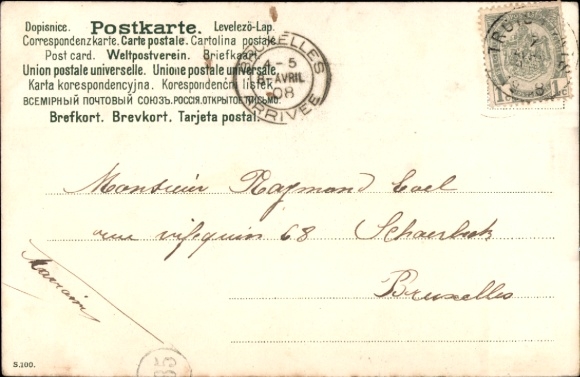 Dopisnice. Postkarte. Levelező-Lap.
Correspondenzkarte. Carte postale. Cartolina postale.
Post card. Weltpostverein. Briefkaart.
Union postale universelle. Unione postale universale.
Karta korespondencyjna. Korespondenční lístek.
ВСЕМІРНЫЙ ПОЧТОВЫЙ СОЮЗЪ. РОССІЯ. ОТКРЫТОЕ ПИСЬМО.
Brefkort. Brevkort. Tarjeta postal.
BRUXELLES
4-5
8 AVRIL
08
ARRIVÉE
1c 1c
Monsieur Raymond
rue 68 Schaerbeek
Bruxelles
S.100.